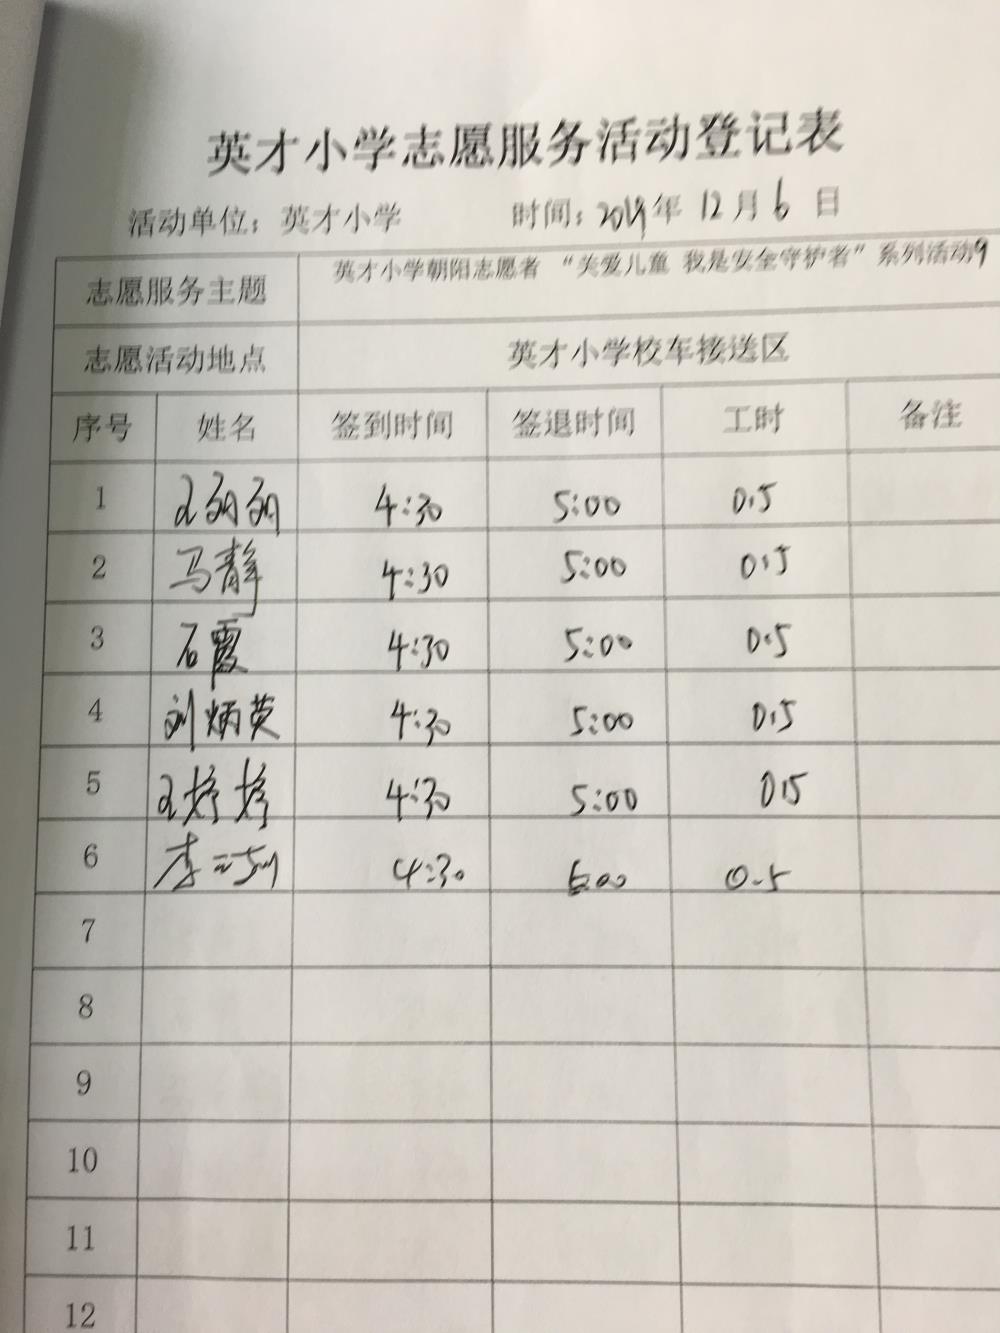 英才小学志愿服务活动登记表
活动单位：英才小学 时间：2019年 12月 6 日
志愿服务主题 英才小学朝阳志愿者 “关爱儿童 我是安全守护者”系列活动9
志愿活动地点 英才小学校车接送区
序号 姓名 签到时间 签退时间 工时 备注
1 王 4:30 5:00 0.5
2 马静 4:30 5:00 0.5
3 石霞 4:30 5:00 0.5
4 刘炳英 4:30 5:00 0.5
5 王婷婷 4:30 5:00 0.5
6 李 4:30 5:00 0.5
7
8
9
10
11
12